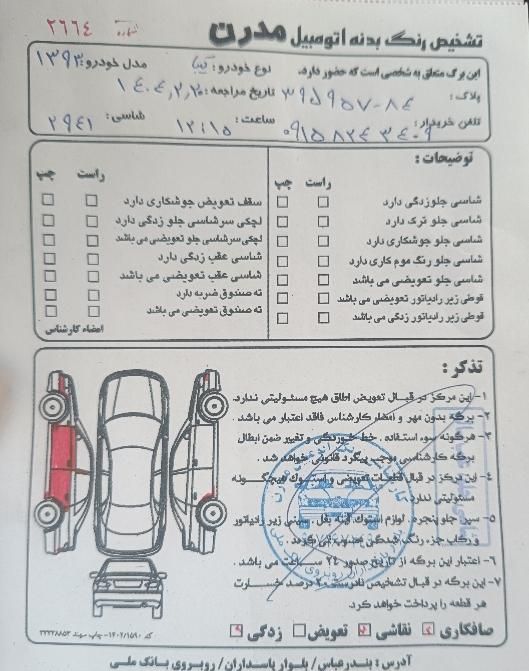 تشخیص رنگ بدنه اتومبیل مدرن
شماره ۲۶۶۴
این برگ متعلق به شخصی است که حضور دارد.
نوع خودرو: تیبا
مدل خودرو: ۱۳۹۳
پلاک: ۳۹۵۹۵۷-۸۴
تاریخ مراجعه: ۱۴۰۴,۲,۲۰
تلفن خریدار: ۰۹۱۵۸۲۴۳۴۰۹
ساعت: ۱۲:۱۵
شاسی: ۲۹۴۱
توضیحات:
راست چپ
شاسی جلوزدگی دارد
شاسی جلو ترک دارد
شاسی جلو جوشکاری دارد
شاسی جلو رنگ موم کاری دارد
شاسی جلو تعویضی می باشد
قوطی زیر رادیاتور تعویضی می باشد
قوطی زیر رادیاتور زدگی می باشد
راست چپ
سقف تعویض جوشکاری دارد
لچکی سرشاسی جلو زدگی دارد
لچکی سرشاسی جلو تعویضی می باشد
شاسی عقب زدگی دارد
شاسی عقب تعویضی می باشد
ته صندوق ضربه دارد
ته صندوق تعویضی می باشد
امضاء کارشناس
تذکر:
۱- این مرکز در قبال تعویض اطاق هیچ مسئولیتی ندارد.
۲- برگه بدون مهر و امضاء کارشناس فاقد اعتبار می باشد.
۳- هرگونه سوء استفاده، خط خوردگی و تغییر ضمن ابطال
برگه کارشناسی موجب پیگرد قانونی خواهد شد.
٤- این مرکز در قبال قطعات تعویضی و استوک هیچگونه
مسئولیتی ندارد.
۵- سینی جلو پنجره، لوازم استوک، سینی زیر رادیاتور
و رکاب جزء رنگ شدگی محسوب نمی گردد.
۶- اعتبار این برگه از تاریخ صدور ۲٤ ساعت می باشد.
۷- این برگه در قبال تشخیص نادرست ۲۰ درصد خسارت
هر قطعه را پرداخت خواهد کرد.
صافکاری نقاشی تعویض زدگی
آدرس: بندرعباس/ بلوار پاسداران/ روبروی بانک ملی